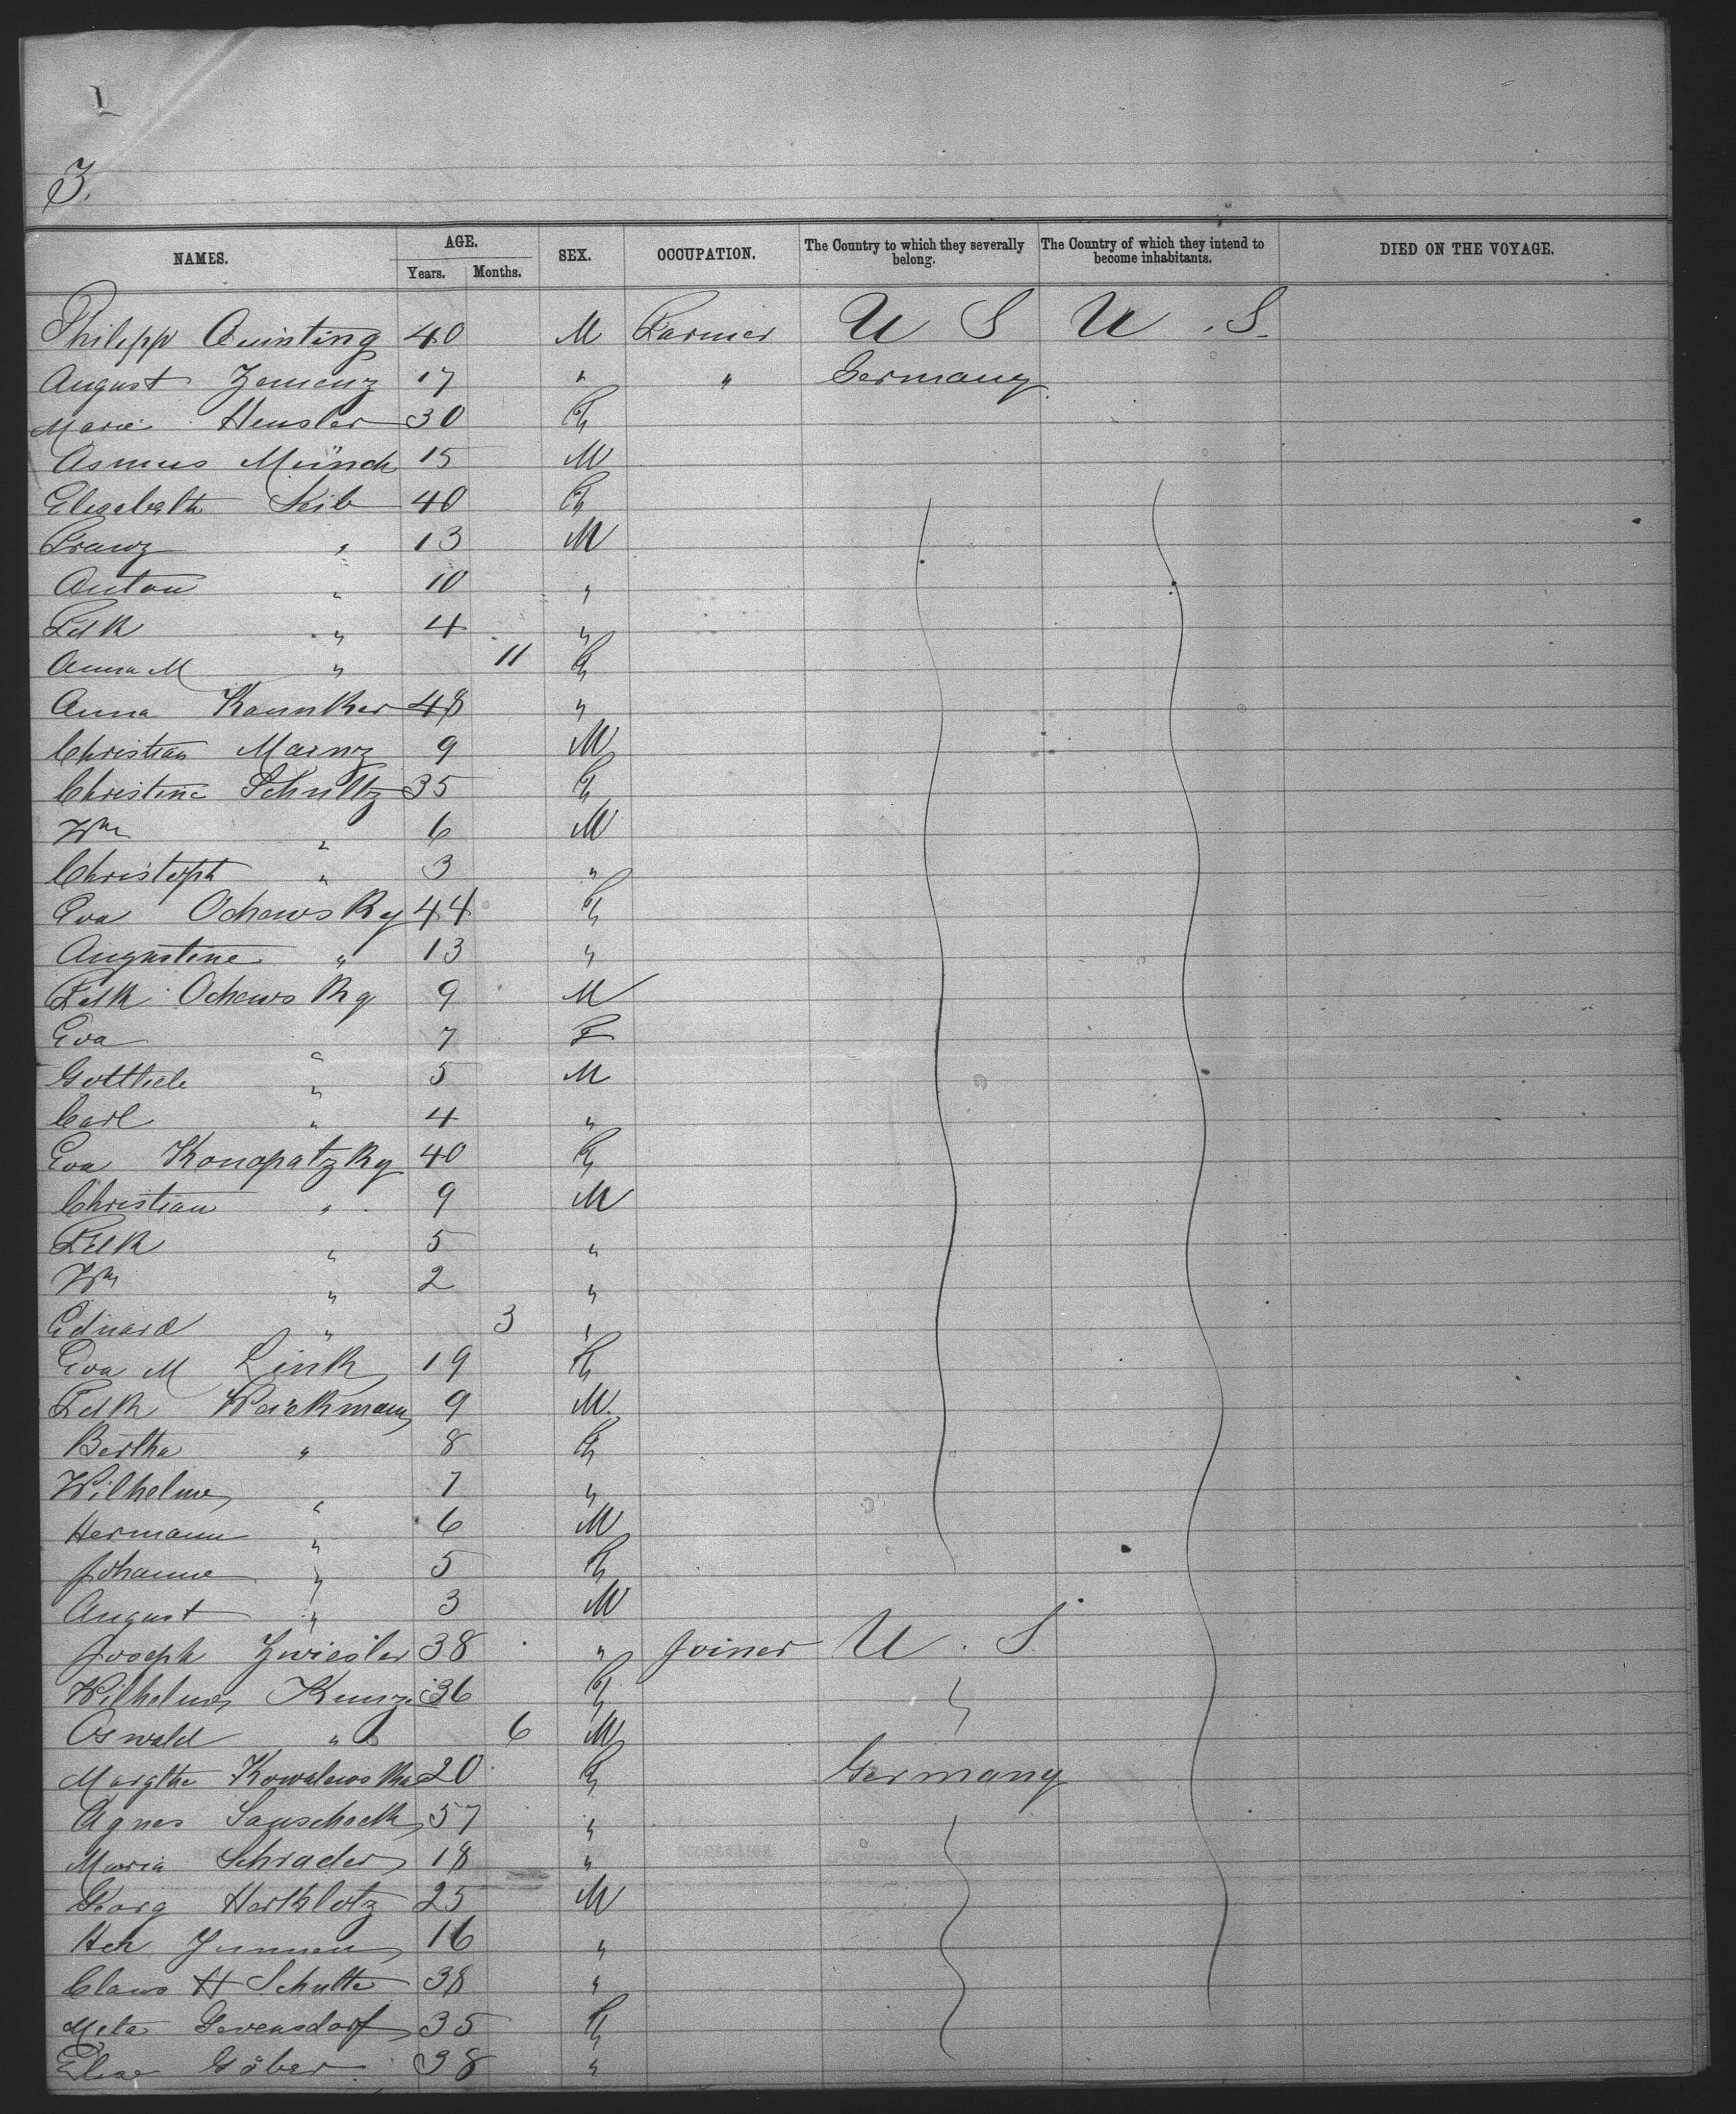 1
3.
NAMES. AGE. Years. Months. SEX. OCCUPATION. The Country to which they severally belong. The Country of which they intend to become inhabitants. DIED ON THE VOYAGE.
Philipp Quinting 40 M Farmer U S U.S.
August Zemenz 17 " " Germany
Marie Hensler 30 F
Asmus Münch 15 M
Elisabeth Leib 40 F
Franz " 13 M
Anton " 10 "
Fdk " 4 "
Anna M " 11 F
Anna Kaunker 48 "
Christian Mainz 9 M
Christine Schultz 35 F
Wm " 6 M
Christoph " 3 "
Eva Ochewsky 44 F
Augustine " 13 "
Fdk Ochewsky 9 M
Eva " 7 F
Gottlieb " 5 M
Carl " 4 "
Eva Konopatzky 40 F
Christian " 9 M
Fdk " 5 "
Wm " 2 "
Eduard " 3 "
Eva M Link 19 F
Fdk Weickmann 9 M.
Bertha " 8 F
Wilhelme " 7 "
Hermann " 6 M
Johanne " 5 F
August " 3 M
Joseph Zwiesler 38 " Joiner U.S.
Wilhelme Kunze 36 F "
Oswald " 6 M
Margthe Kowalewska 20 F Germany
Agnes 57 "
Maria Schrader 18 "
Georg Herklotz 25 M
Hch 16 "
Claus H Schulte 38 "
Meta Gevensdorf 35 F
Elise Göber 38 "